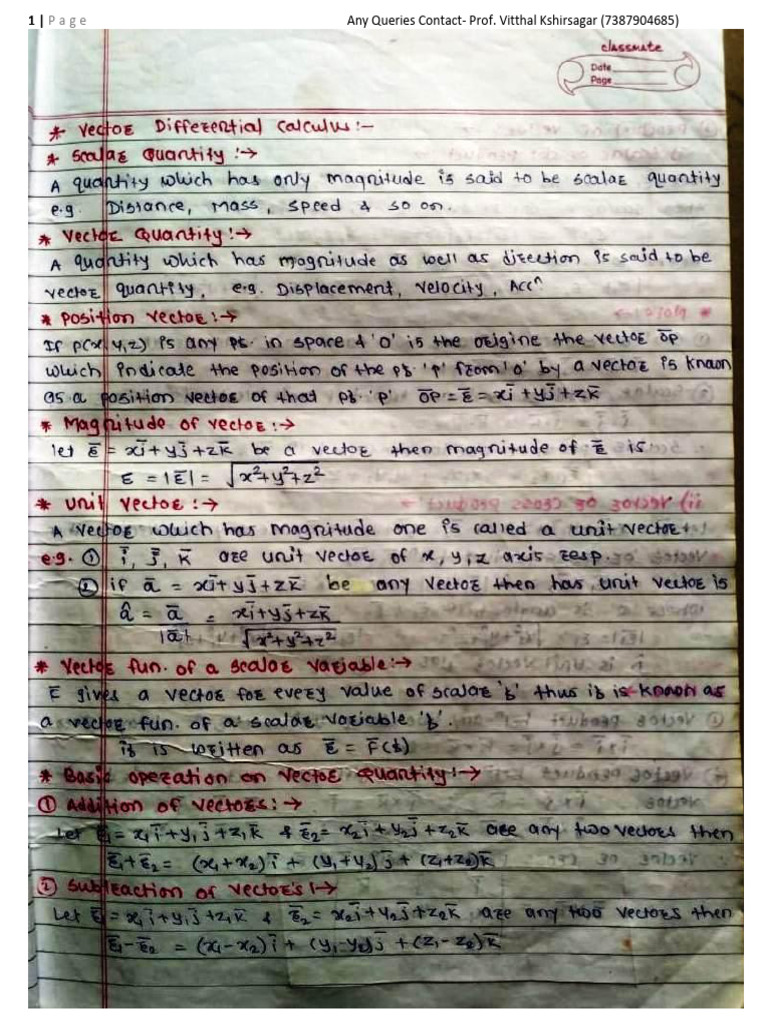 1 | Page Any Queries Contact- Prof. Vitthal Kshirsagar (7387904685)
classmate
Date
Page
* Vector Differential Calculus :-
* Scalar Quantity :→
A quantity which has only magnitude is said to be scalar quantity
e.g. Distance, mass, speed & so on.
* Vector Quantity :→
A quantity which has magnitude as well as direction is said to be
vector quantity, e.g. Displacement, velocity, Accⁿ
* Position vector :→
If P(x,y,z) is any pt. in space & 'O' is the origine the vector O̅P̅
which indicate the position of the pt 'P' from 'O' by a vector is known
as a position vector of that pt. 'P' O̅P̅ = r̅ = xi̅ + yj̅ + zk̅
* Magnitude of vector :→
let r̅ = xi̅ + yj̅ + zk̅ be a vector then magnitude of r̅ is
r = |r̅| = √x²+y²+z²
* Unit vector :→
A vector which has magnitude one is called a unit vector.
e.g. ① i̅, j̅, k̅ are unit vector of x, y, z axis resp.
② if a̅ = xi̅ + yj̅ + zk̅ be any vector then has unit vector is
â = a̅/|a̅| = xi̅+yj̅+zk̅/√x²+y²+z²
* Vector fun. of a scalar variable :→
r̅ gives a vector for every value of scalar 't' thus it is known as
a vector fun. of a scalar variable 't'.
it is written as r̅ = F̅(t)
* Basic operation on vector quantity :→
① Addition of vectors :→
Let r̅₁ = x₁i̅ + y₁j̅ + z₁k̅ & r̅₂ = x₂i̅ + y₂j̅ + z₂k̅ are any two vectors then
r̅₁+r̅₂ = (x₁+x₂)i̅ + (y₁+y₂)j̅ + (z₁+z₂)k̅
② Subtraction of vectors :→
Let r̅₁ = x₁i̅ + y₁j̅ + z₁k̅ & r̅₂ = x₂i̅ + y₂j̅ + z₂k̅ are any two vectors then
r̅₁-r̅₂ = (x₁-x₂)i̅ + (y₁-y₂)j̅ + (z₁-z₂)k̅